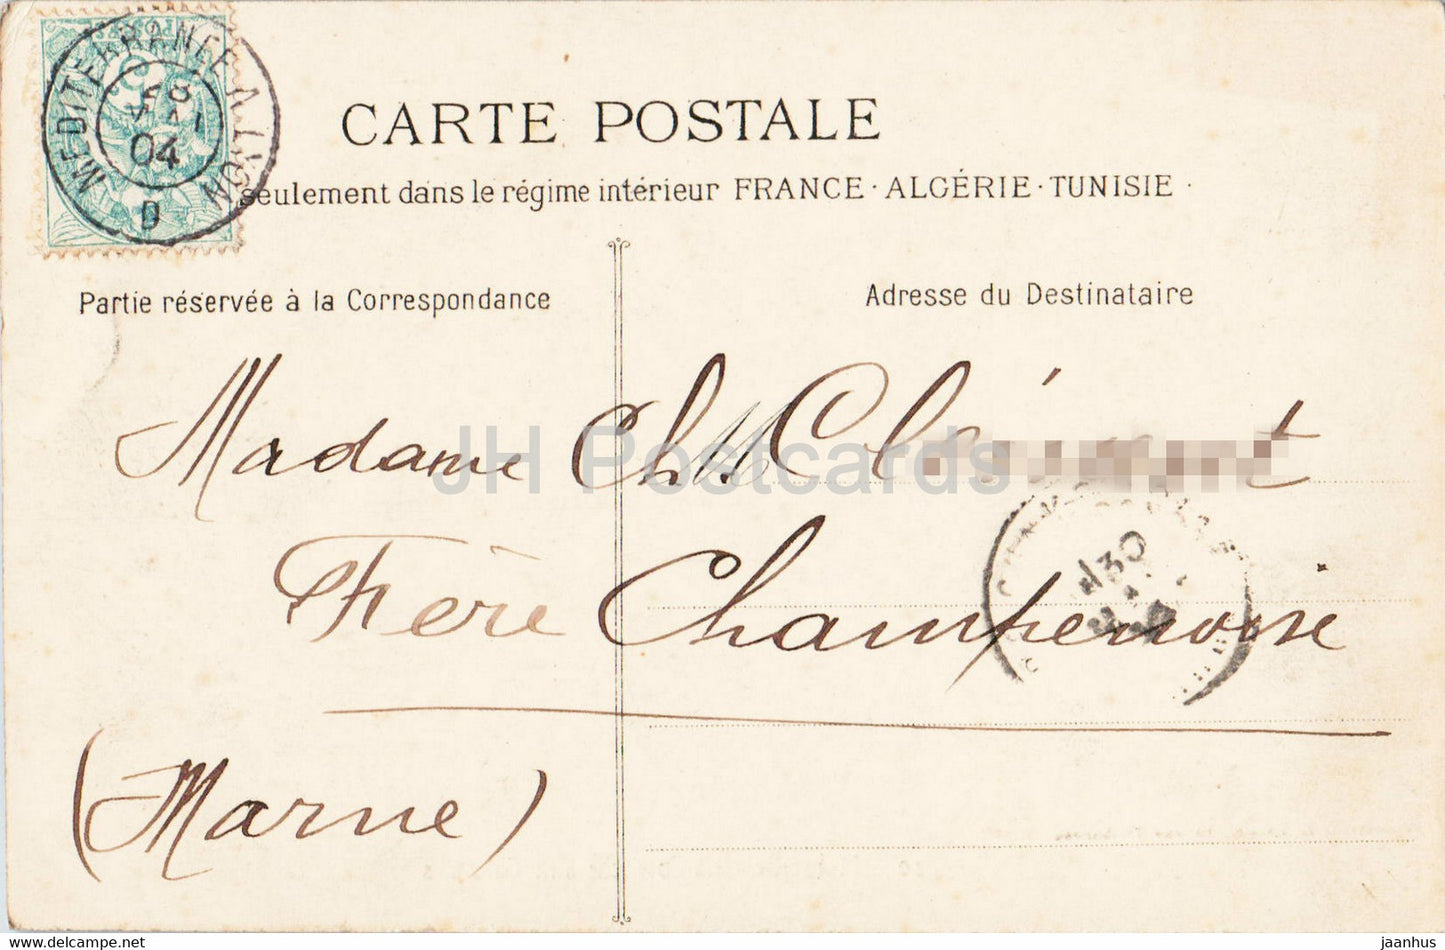 CARTE POSTALE
seulement dans le régime intérieur FRANCE · ALGÉRIE · TUNISIE ·
MEDITERRANEE A LYON
04
D
Partie réservée à la Correspondance
Adresse du Destinataire
Madame Ch.
Fère Champenoise
(Marne)
30
JH Postcards
www.delcampe.net
jaanhus